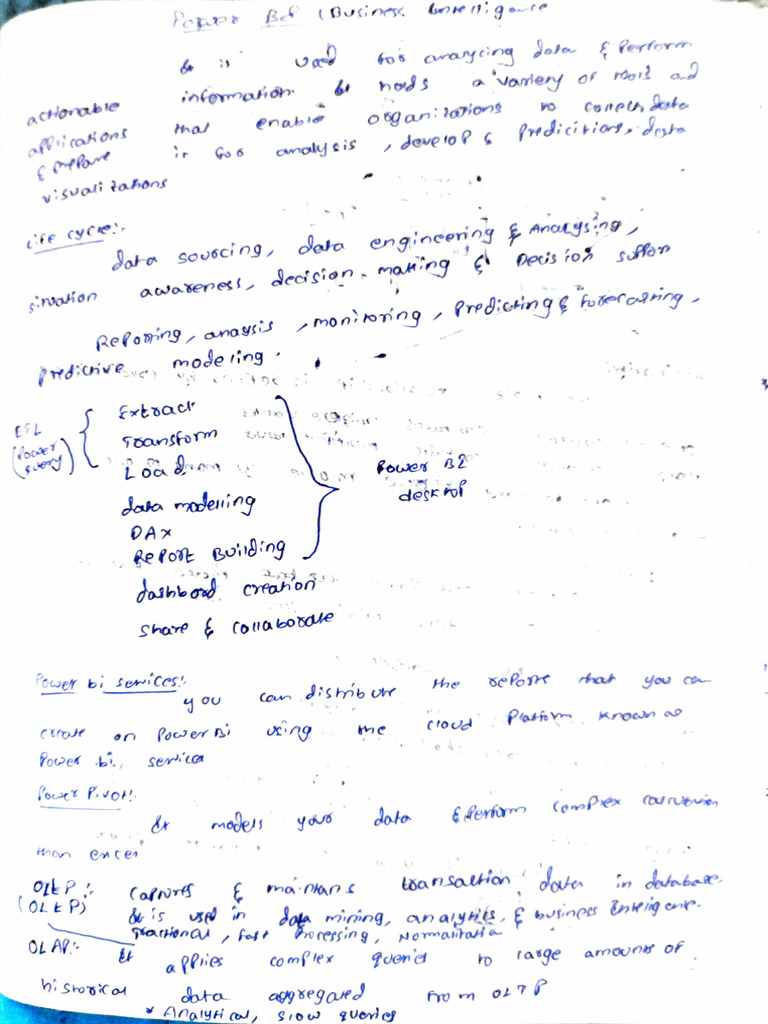 Power BI (Business Intelligence
It is used for analycing data & perform
actionable information It holds a variety of tools and
applications that enable organizations to collect data
& prepare it for analysis, develop & Predicitions, data
visualizations
Life cycle:-
data sourcing, data engineering & Analysing,
sination awareness, decision making & Decision support
Reporting, anaysis, monitoring, Predicting & forecasting,
predictive modeling.
ETL
(Power
query)
Extract
Transform
Load
data modelling
DAX
Report Building
Power BI
desktop
dashbord creation
Share & collaborate
Power bi services:-
you can distribute the reports that you can
create on PowerBi using the cloud Platform known as
Power bi, service
Power Pivot:-
It models your data & perform complex
than excel
OLTP:- Captures & maintans transaction data in database.
(OLTP) It is used in data mining, analytics, & business Intelligence.
Tractional, fast Processing,
OLAP:- It applies complex queries to large amounts of
historical data aggregated from OLTP
* Analytical, slow queries